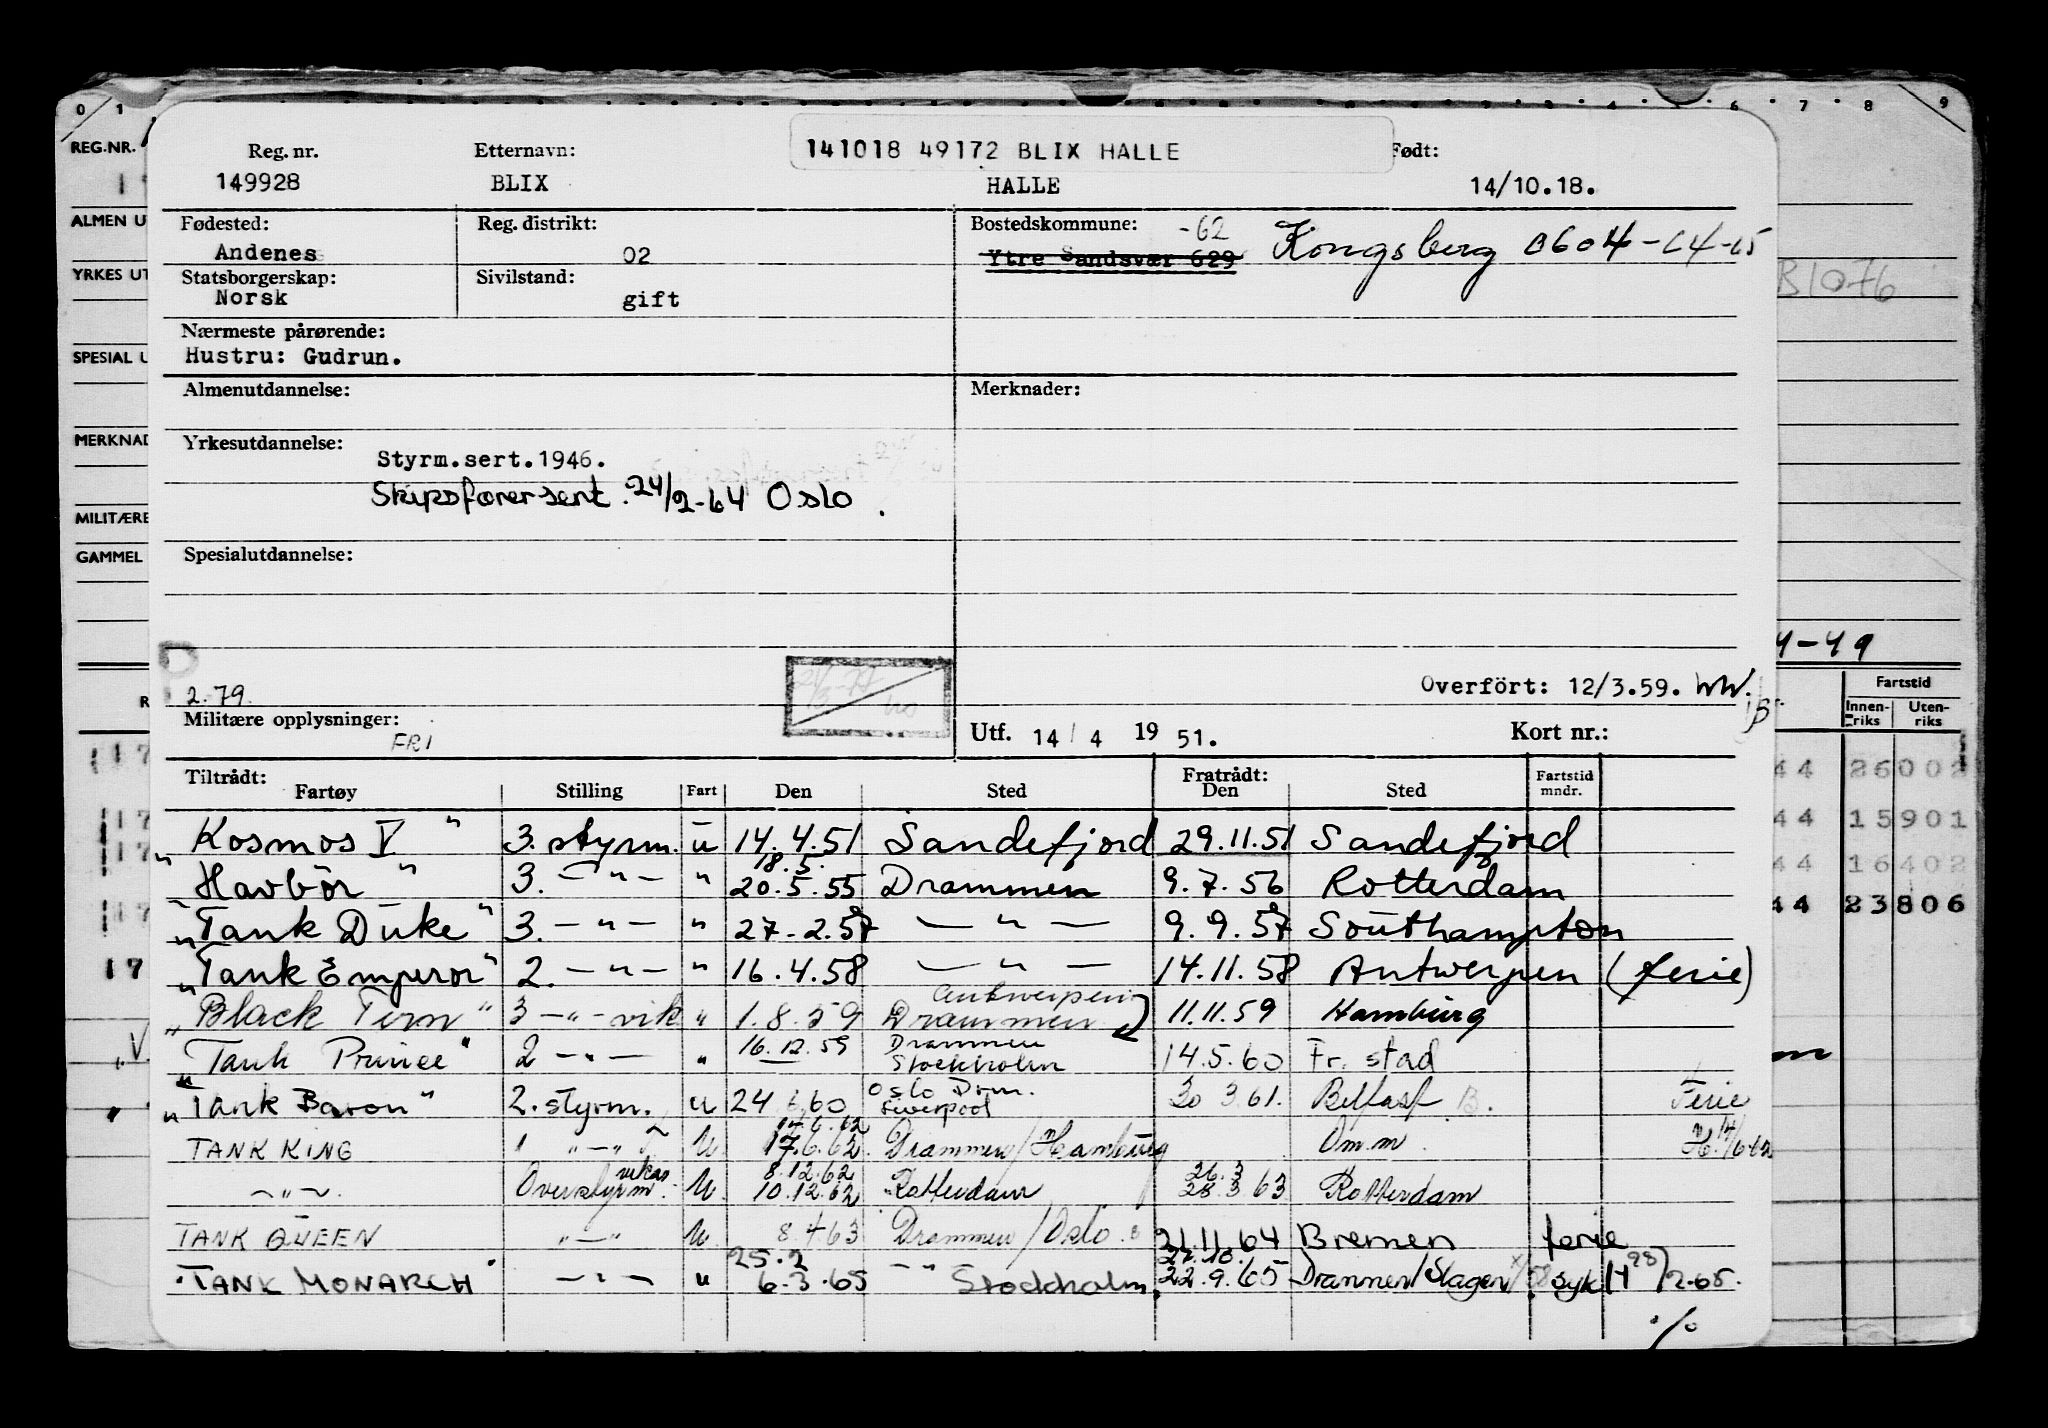 0 1 6 7 8 9
REG.NR. Reg. nr. Etternavn: 141018 49172 BLIX HALLE Født:
149928 BLIX HALLE 14/10.18.
ALMEN U Fødested: Reg. distrikt: Bostedskommune: -62 Kongsberg 0604-14-15
Andenes 02 Ytre Sandsvær 629
YRKES UT Statsborgerskap: Sivilstand: B1076
Norsk gift
Nærmeste pårørende:
SPESIAL U Hustru: Gudrun.
Almenutdannelse: Merknader:
MERKNAD Yrkesutdannelse:
Styrm.sert.1946.
Skipsførersert. 24/2-64 Oslo.
MILITÆRE
GAMMEL Spesialutdannelse:
4-49
2.79. Overfört: 12/3.59. WW. Fartstid
Militære opplysninger: Utf. 14/4 1951. Kort nr.: Innen-riks Uten-riks
FRI
Tiltrådt: Fratrådt: Fartstid 44 26002
Fartøy Stilling Fart Den Sted Den Sted mndr.
Kosmos V " 3. styrm. u 14.4.51 Sandefjord 29.11.51 Sandefjord 44 15901
18.5.
"Havbör" 3. -"- " 20.5.55 Drammen 9.7.56 Rotterdam 44 16402
"Tank Duke" 3. -"- " 27.2.57 -"- 9.9.57 Southampton 44 23806
"Tank Emperor" 2. -"- " 16.4.58 -"- 14.11.58 Antwerpen (ferie)
Antwerpen
"Black Tern" 3 -"- vik " 1.8.59 Drammen 11.11.59 Hamburg
Drammen
"Tank Prince" 2 -"- " 16.12.59 Stockholm 14.5.60 Fr. stad
Oslo Drm.
"Tank Baron" 2. styrm. u 24 6 60 Liverpool 30 3 61. Belfast B. Ferie
17.6.62
TANK KING 1 "-" u 17.6.62 Drammen/Hamburg Om.m H. 14/6-62
vikar 8.12.62 26.3
-"-. Overstyrm. u 10.12.62 Rotterdam 28.3 63 Rotterdam
TANK QUEEN "-" u 8.4.63 Drammen/Oslo 21.11.64 Bremen ferie
25.2 22.10.
"TANK MONARCH" -"- u 6.3.65 -"- Stockholm. 22.9.65 Drammen/Slagen syk H 25/2-65.
./.